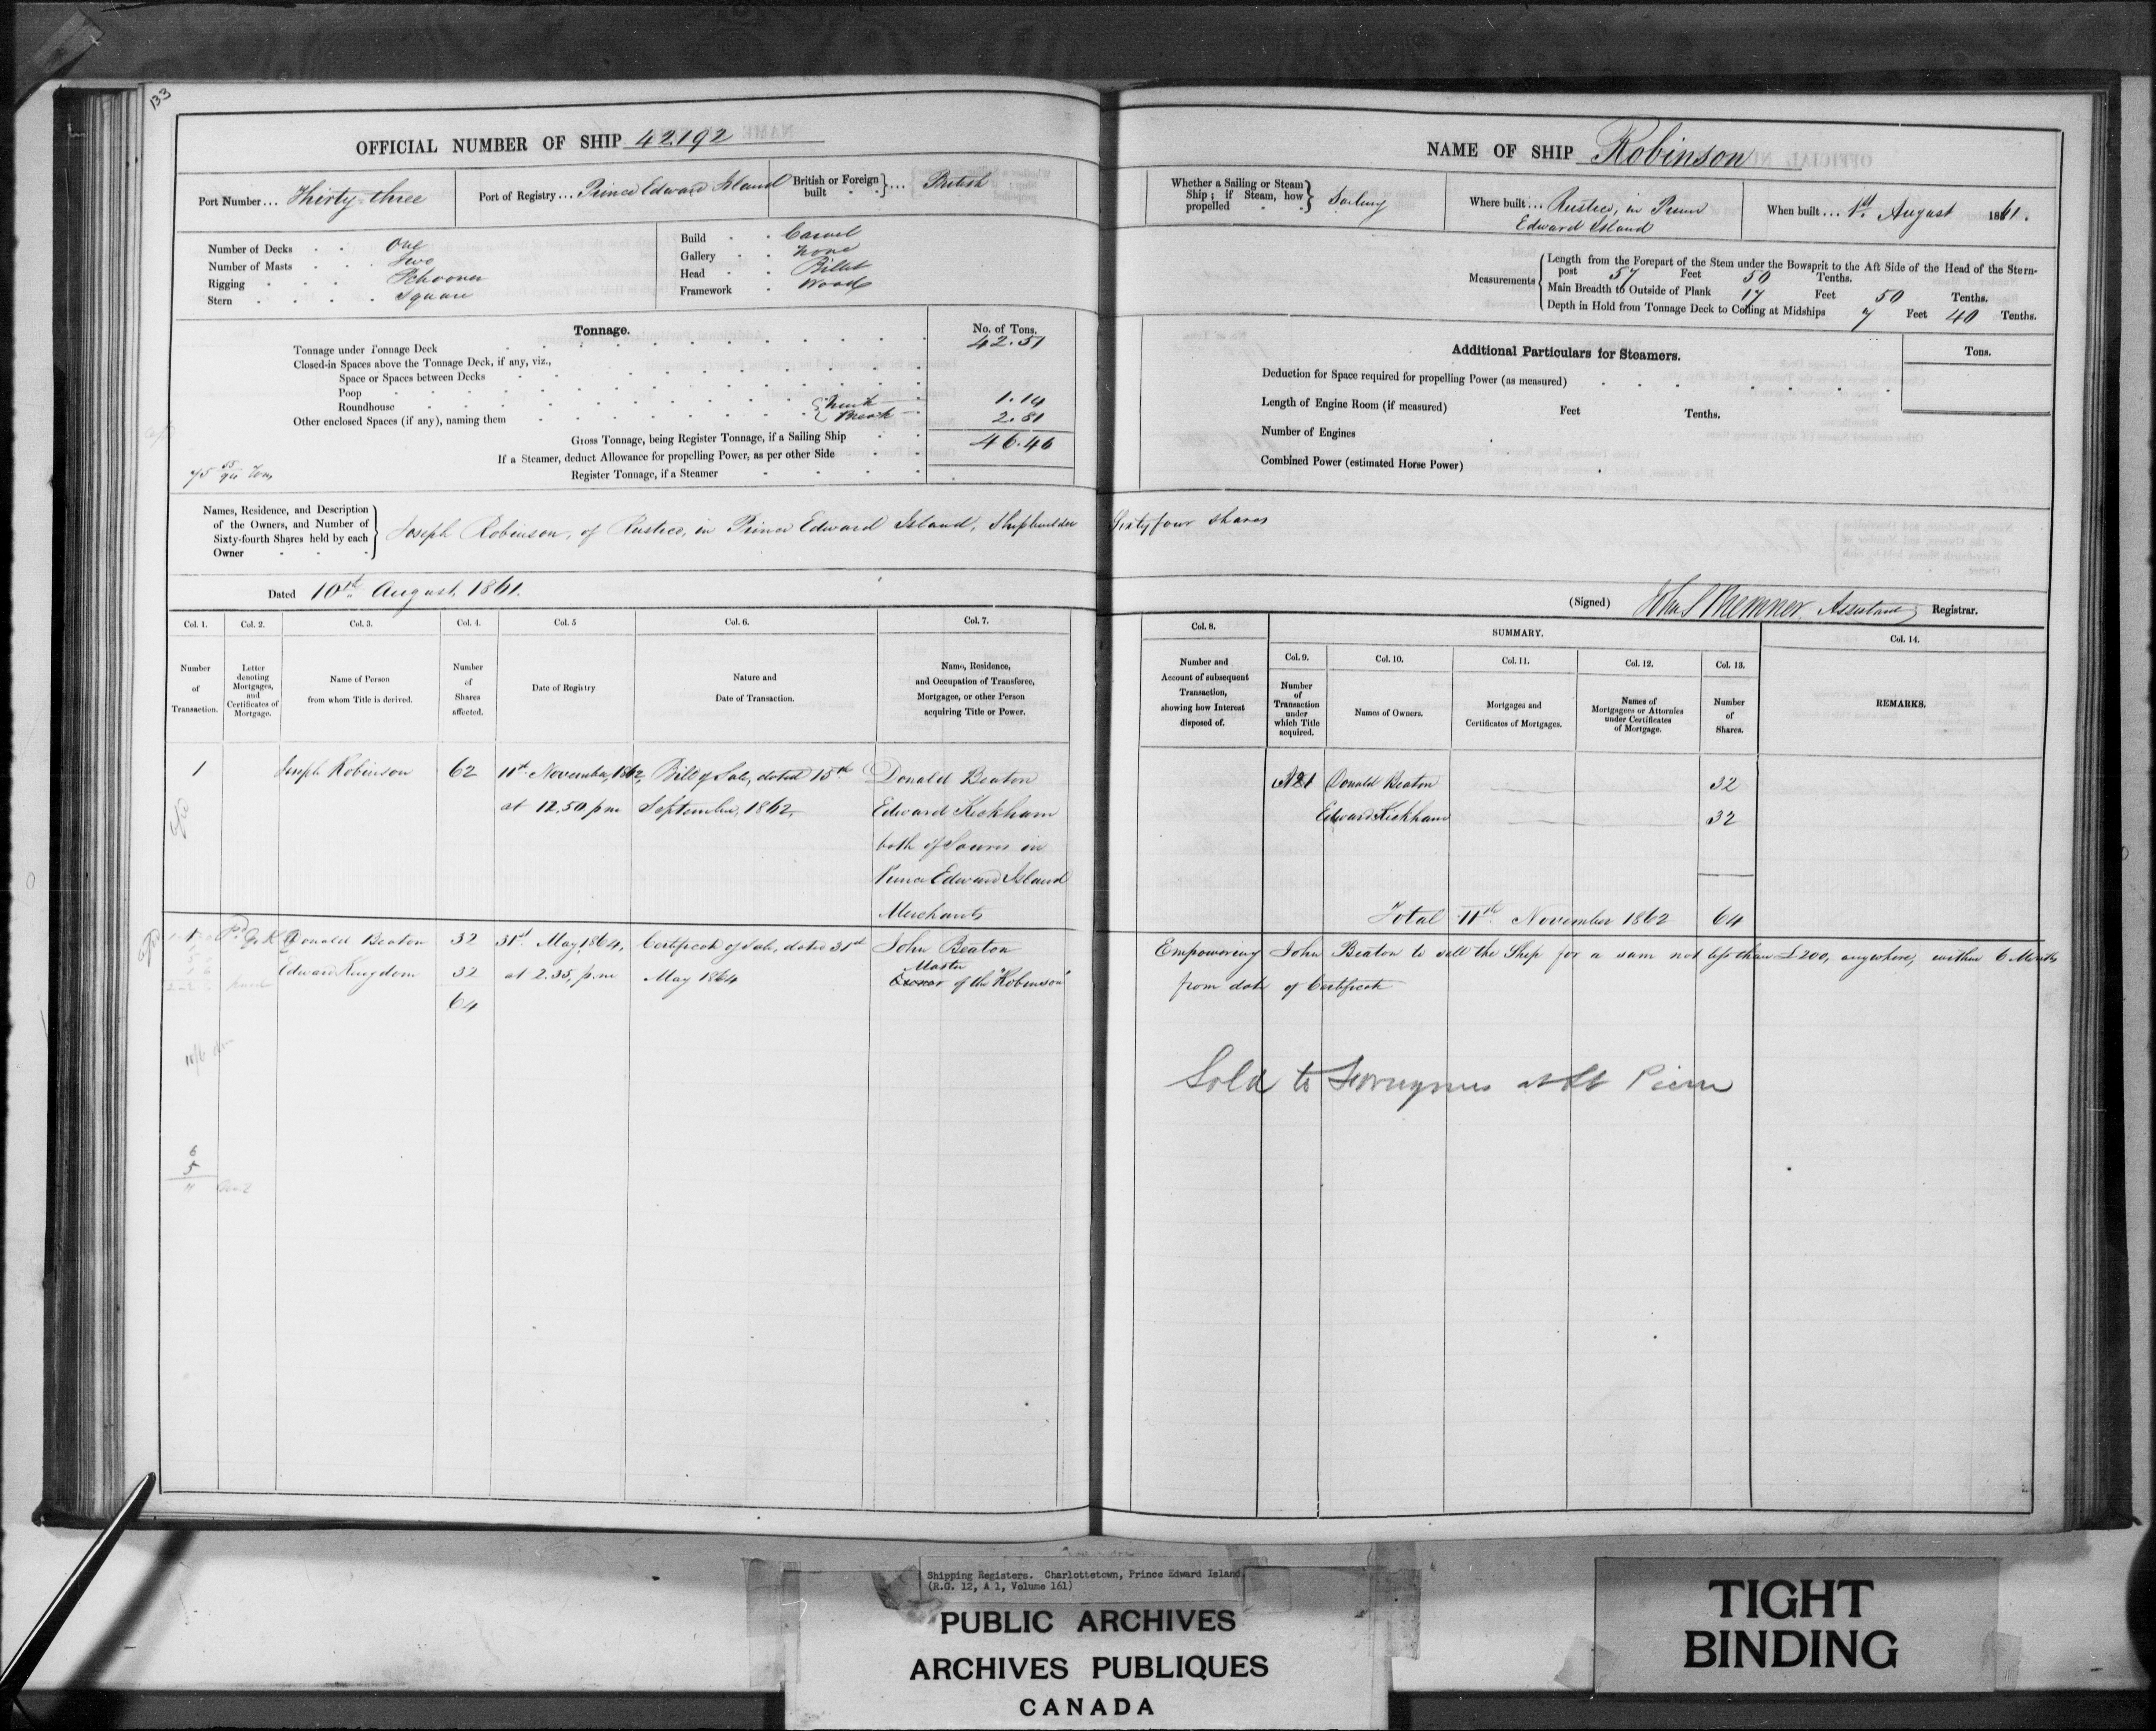 133
OFFICIAL NUMBER OF SHIP 42192
Port Number... Thirty-three
Port of Registry... Prince Edward Island
British or Foreign built } ... British
Number of Decks One
Number of Masts Two
Rigging Schooner
Stern Square
Build Carvel
Gallery None
Head Billet
Framework Wood
Tonnage.
No. of Tons.
Tonnage under Tonnage Deck 42.51
Closed-in Spaces above the Tonnage Deck, if any, viz.,
Space or Spaces between Decks
Poop
Roundhouse 1.14
Other enclosed Spaces (if any), naming them { Break 2.81
Gross Tonnage, being Register Tonnage, if a Sailing Ship 46.46
If a Steamer, deduct Allowance for propelling Power, as per other Side
Register Tonnage, if a Steamer
Names, Residence, and Description of the Owners, and Number of Sixty-fourth Shares held by each Owner } Joseph Robinson, of Rustico, in Prince Edward Island, Shipbuilder Sixty four shares
Dated 10th August 1861.
Col. 1. Col. 2. Col. 3. Col. 4. Col. 5 Col. 6. Col. 7.
Number of Transaction.
Letter denoting Mortgages, and Certificates of Mortgage.
Name of Person from whom Title is derived.
Number of Shares affected.
Date of Registry
Nature and Date of Transaction.
Name, Residence, and Occupation of Transferee, Mortgagee, or other Person acquiring Title or Power.
1 Joseph Robinson 62 11th November, 1862, Bill of Sale, dated 15th Donald Beaton
at 12.50 p.m September, 1862, Edward Kickham
both of Souris in
Prince Edward Island
Merchants
Donald Beaton 32 31st May 1864, Certificate of Sale, dated 31st John Beaton
Edward Kingdom 32 at 2.35, p.m May 1864 Master
Owner of the "Robinson"
64
6
5
11
NAME OF SHIP Robinson
Whether a Sailing or Steam Ship; if Steam, how propelled } Sailing
Where built... Rustico, in Prince
Edward Island
When built... 1st August 1861.
Measurements { Length from the Forepart of the Stem under the Bowsprit to the Aft Side of the Head of the Stern-
post 57 Feet 50 Tenths.
Main Breadth to Outside of Plank 17 Feet 50 Tenths.
Depth in Hold from Tonnage Deck to Ceiling at Midships 7 Feet 40 Tenths.
Additional Particulars for Steamers.
Tons.
Deduction for Space required for propelling Power (as measured)
Length of Engine Room (if measured) Feet Tenths.
Number of Engines
Combined Power (estimated Horse Power)
(Signed) Assistant Registrar.
Col. 8. SUMMARY. Col. 14.
Col. 9. Col. 10. Col. 11. Col. 12. Col. 13.
Number and Account of subsequent Transaction, showing how Interest disposed of.
Number of Transaction under which Title acquired.
Names of Owners.
Mortgages and Certificates of Mortgages.
Names of Mortgagees or Attornies under Certificates of Mortgage.
Number of Shares.
REMARKS.
Donald Beaton 32
Edward Kickham 32
Total 11th November 1862 64
Empowering John Beaton to sell the Ship for a sum not less than £200, anywhere, within 6 Months
from date of Certificate
Sold to Foreigners at St Pierre
Shipping Registers. Charlottetown, Prince Edward Island.
(R.G. 12, A 1, Volume 161)
PUBLIC ARCHIVES
ARCHIVES PUBLIQUES
CANADA
TIGHT
BINDING